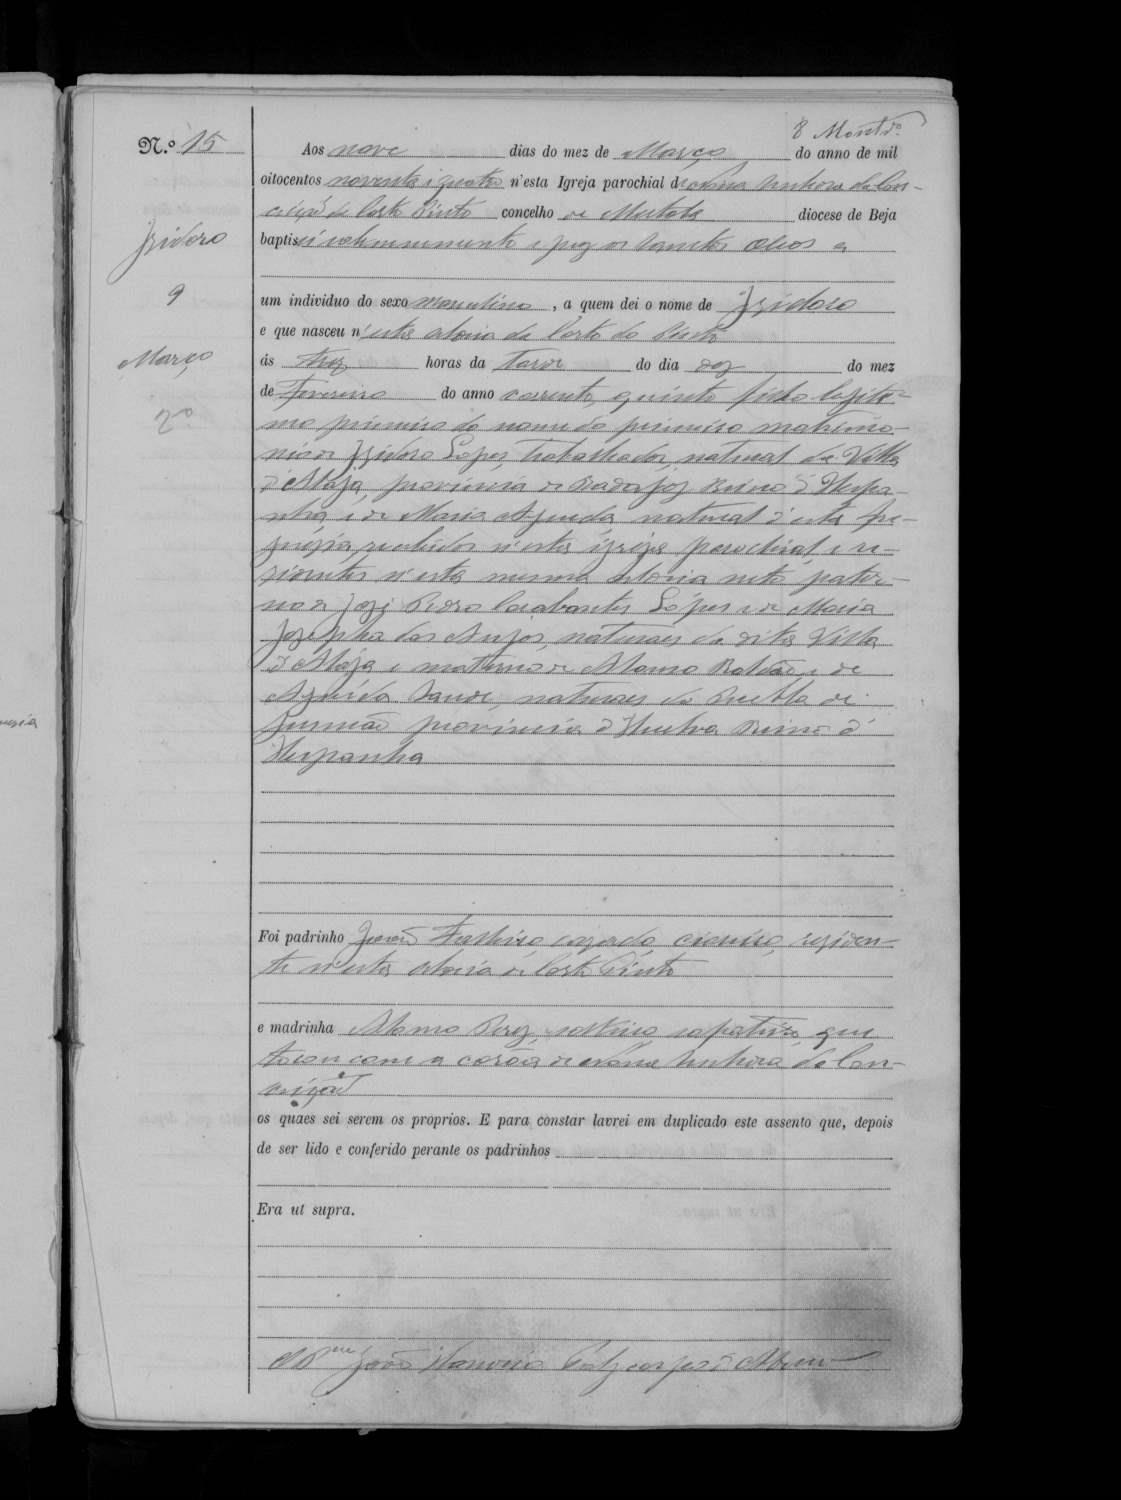 8 Montr.o
N.º 15
Aos nove dias do mez de Março do anno de mil
oitocentos noventa e quatro n'esta Igreja parochial de Nossa Senhora da Con-
ceição da Corte Pinto concelho de Mertola diocese de Beja
Izidoro
baptisei solemnemente e puz os Santos Oleos a
9
um individuo do sexo masculino, a quem dei o nome de Izidoro
e que nasceu n'esta aldeia da Corte do Pinto
Março
ás trez horas da tarde do dia dez do mez
de Fevereiro do anno corrente, quinto filho legiti-
mo primeiro do nome do primeiro matrimo-
nio de Izidoro Lopes, trabalhador, natural da Villa
d'Alája, provincia de Badajoz Reino d'Hespa-
nha, e de Maria Agueda natural d'esta fre-
guezia, recebidos n'esta igreja parochial, e re-
zidentes n'esta mesma aldeia neto pater-
no de José Pedro Lopes e de Maria
Jozepha dos Anjos, naturaes da dita Villa
d'Alája e materno de Alonso Roldão e de
Agueda naturaes da Puebla de
Gusmão provincia d'Huelva Reino d'
Hespanha
Foi padrinho cazado, residen-
te n'esta aldeia de Corte Pinto
e madrinha Alonso Perez, solteiro, sapateiro, que
tocou com a corôa de Nossa Senhora da Con-
ceição
os quaes sei serem os proprios. E para constar lavrei em duplicado este assento que, depois
de ser lido e conferido perante os padrinhos
Era ut supra.
João